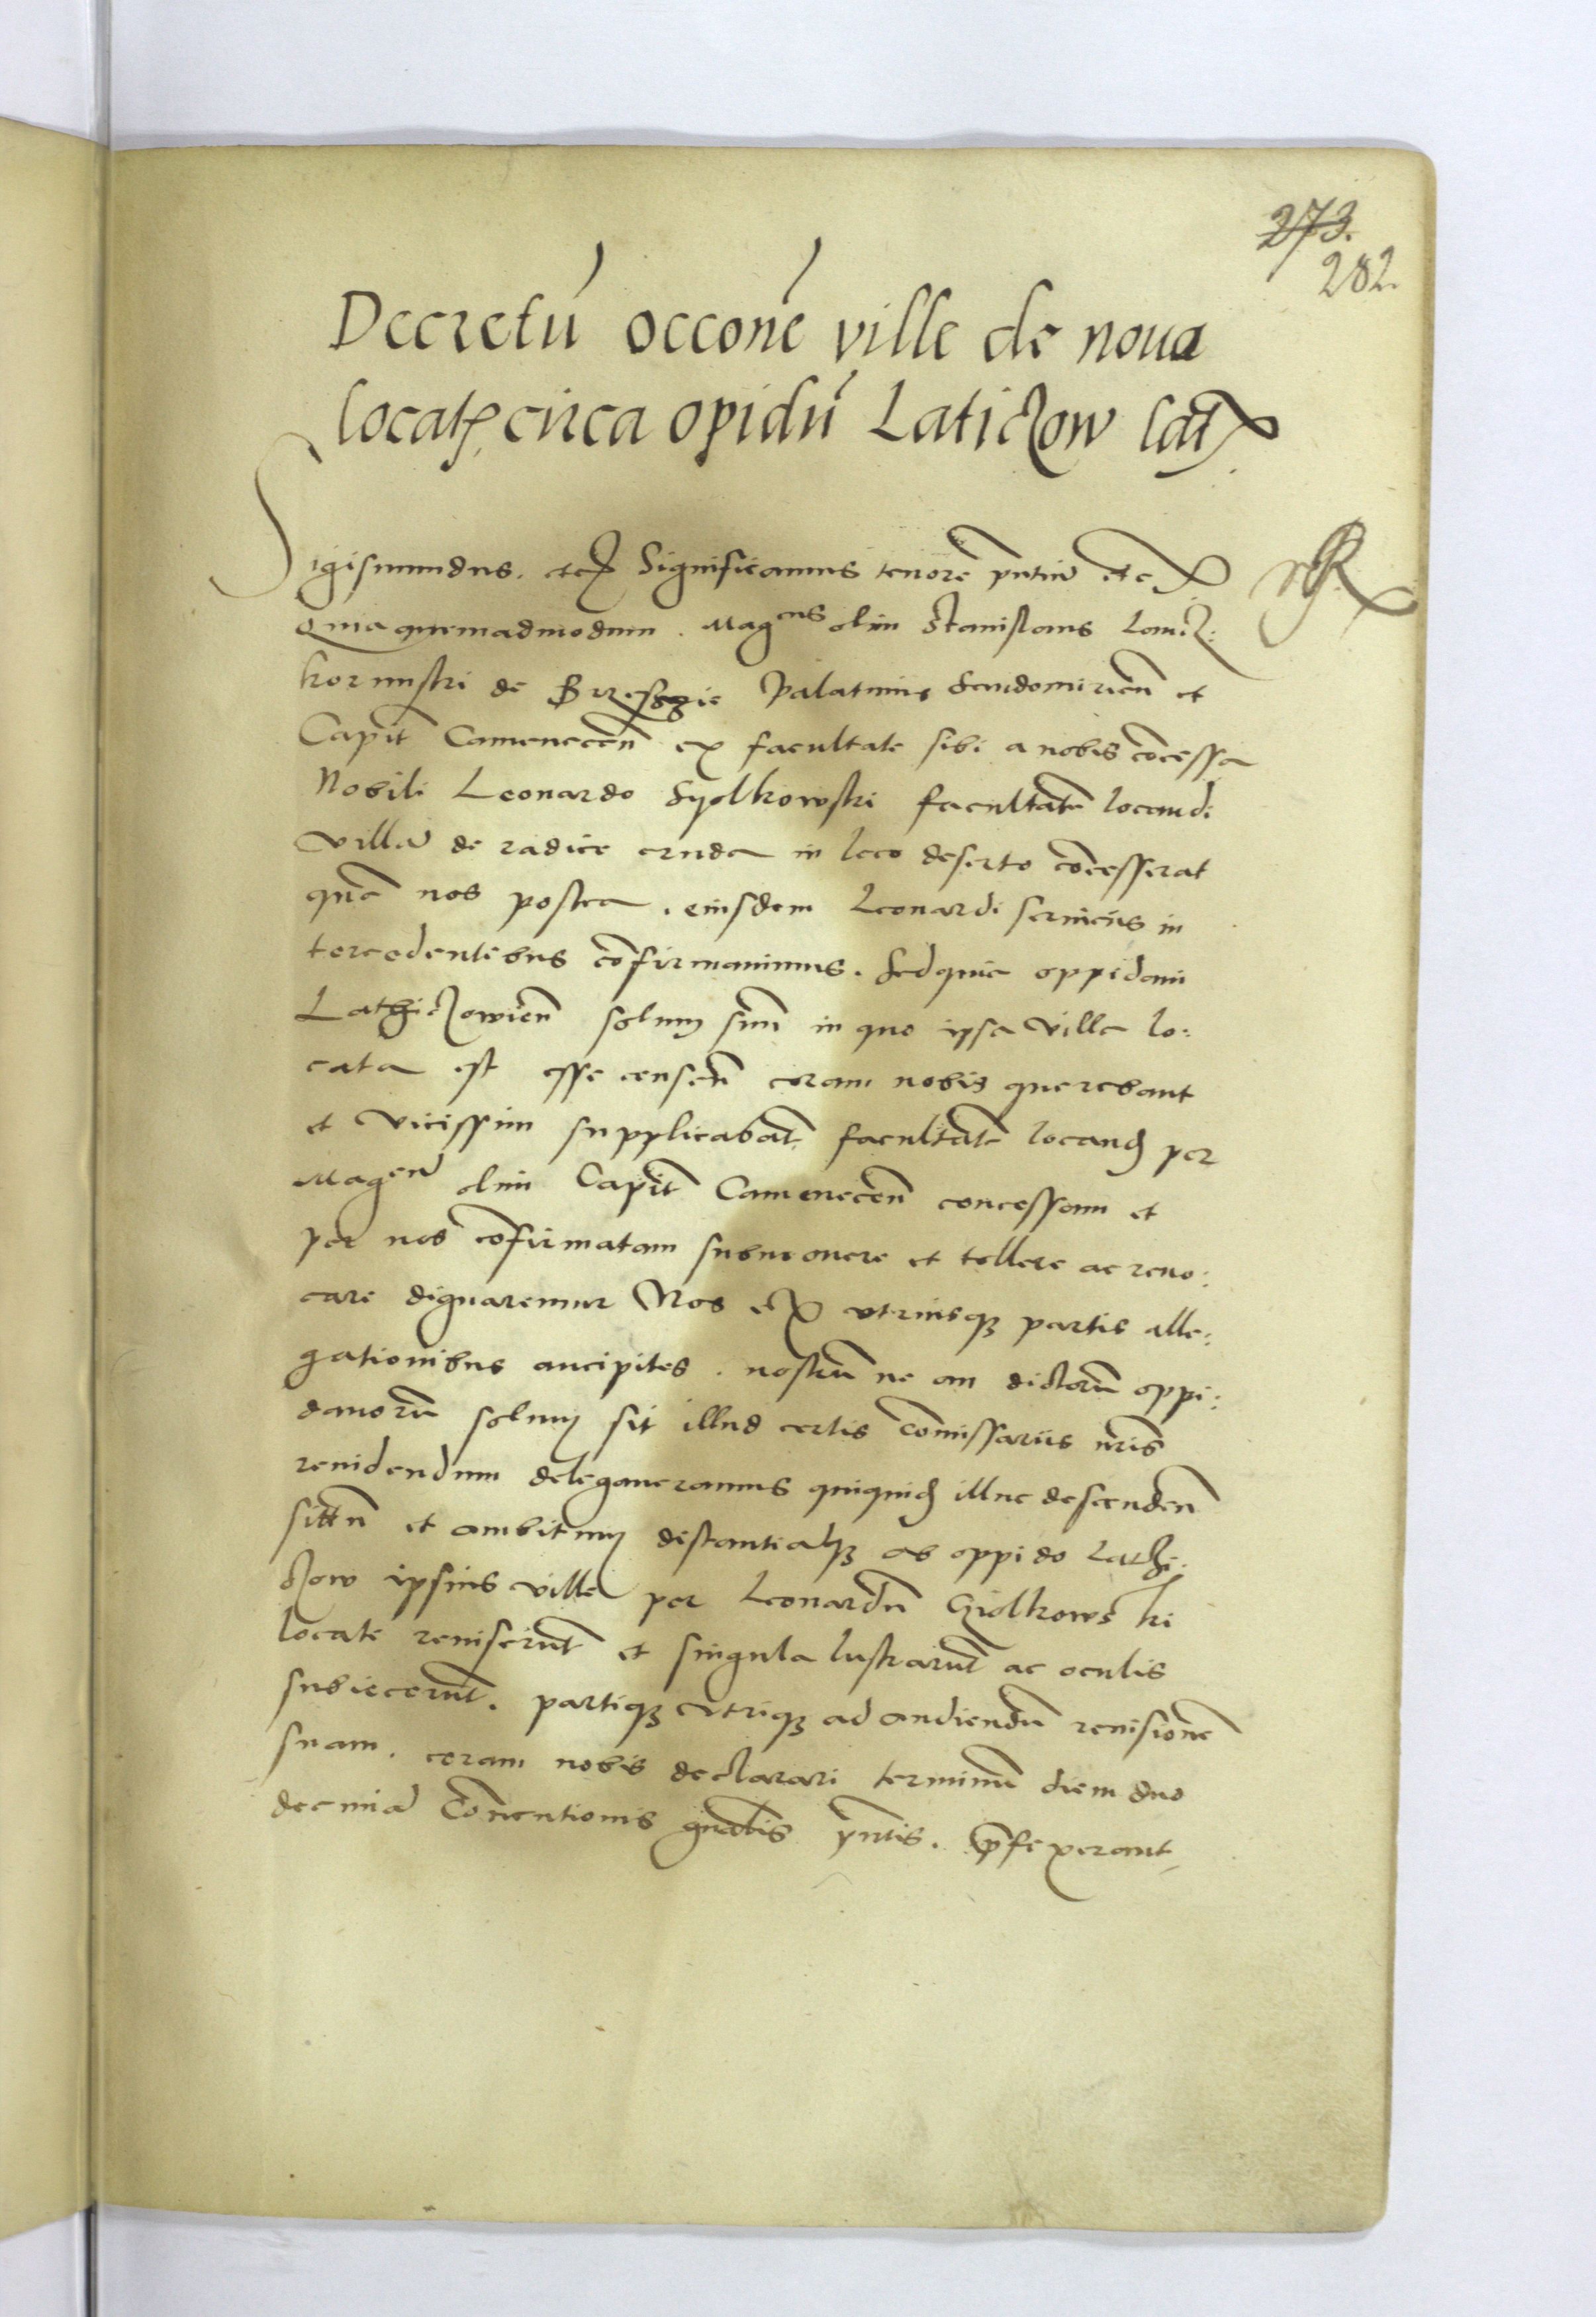 273.
282.
Decretū occone ville de noua
locat circa opidū Laticzow lat
Sigismundus. etc Significamus tenore pntiu etc
Quia quemadmodum. Magcus olim Stanislaus Lancz:
korunski de Brzeszie Palatinus Sandomirien et
Capit Camenecen ex facultate sibi a nobis cōcessa
Nobili Leonardo Syolkowski facultatē locandi
villā de radice cruda in loco deserto cōcesserat
quā nos postea. eiusdem Leonardi seruiciis in
tercedentibus cōfirmauimus. Sed quia oppidani
Lathiczowien solum suū in quo ipsa villa lo:
cata est esse censen coram nobis querebant
et vicissim supplicabāt facultatē locand per
Magcu olim Capit Camenecen concessam et
per nos cōfirmatam submouere et tollere ac reuo:
care dignaremur Nos ex vtriusq partis alle:
gationibus ancipites. nostrū ne an dictorū oppi:
danorū solum sit illud certis cōmissariis nris
reuidendum delegaueramus quiquid illuc descenden
sitū et ambitum distantiāq ab oppido Lathi:
czow ipsius ville per Leonardū Ziolkowski
locate reuiserūt et singula lustrarūt ac oculis
subiecerūt. partiq vtriq ad audiendū reuisionē
suam. coram nobis declarari terminū diem duo
decimā Cōuentionis gnalis pntis. p̄fixerant